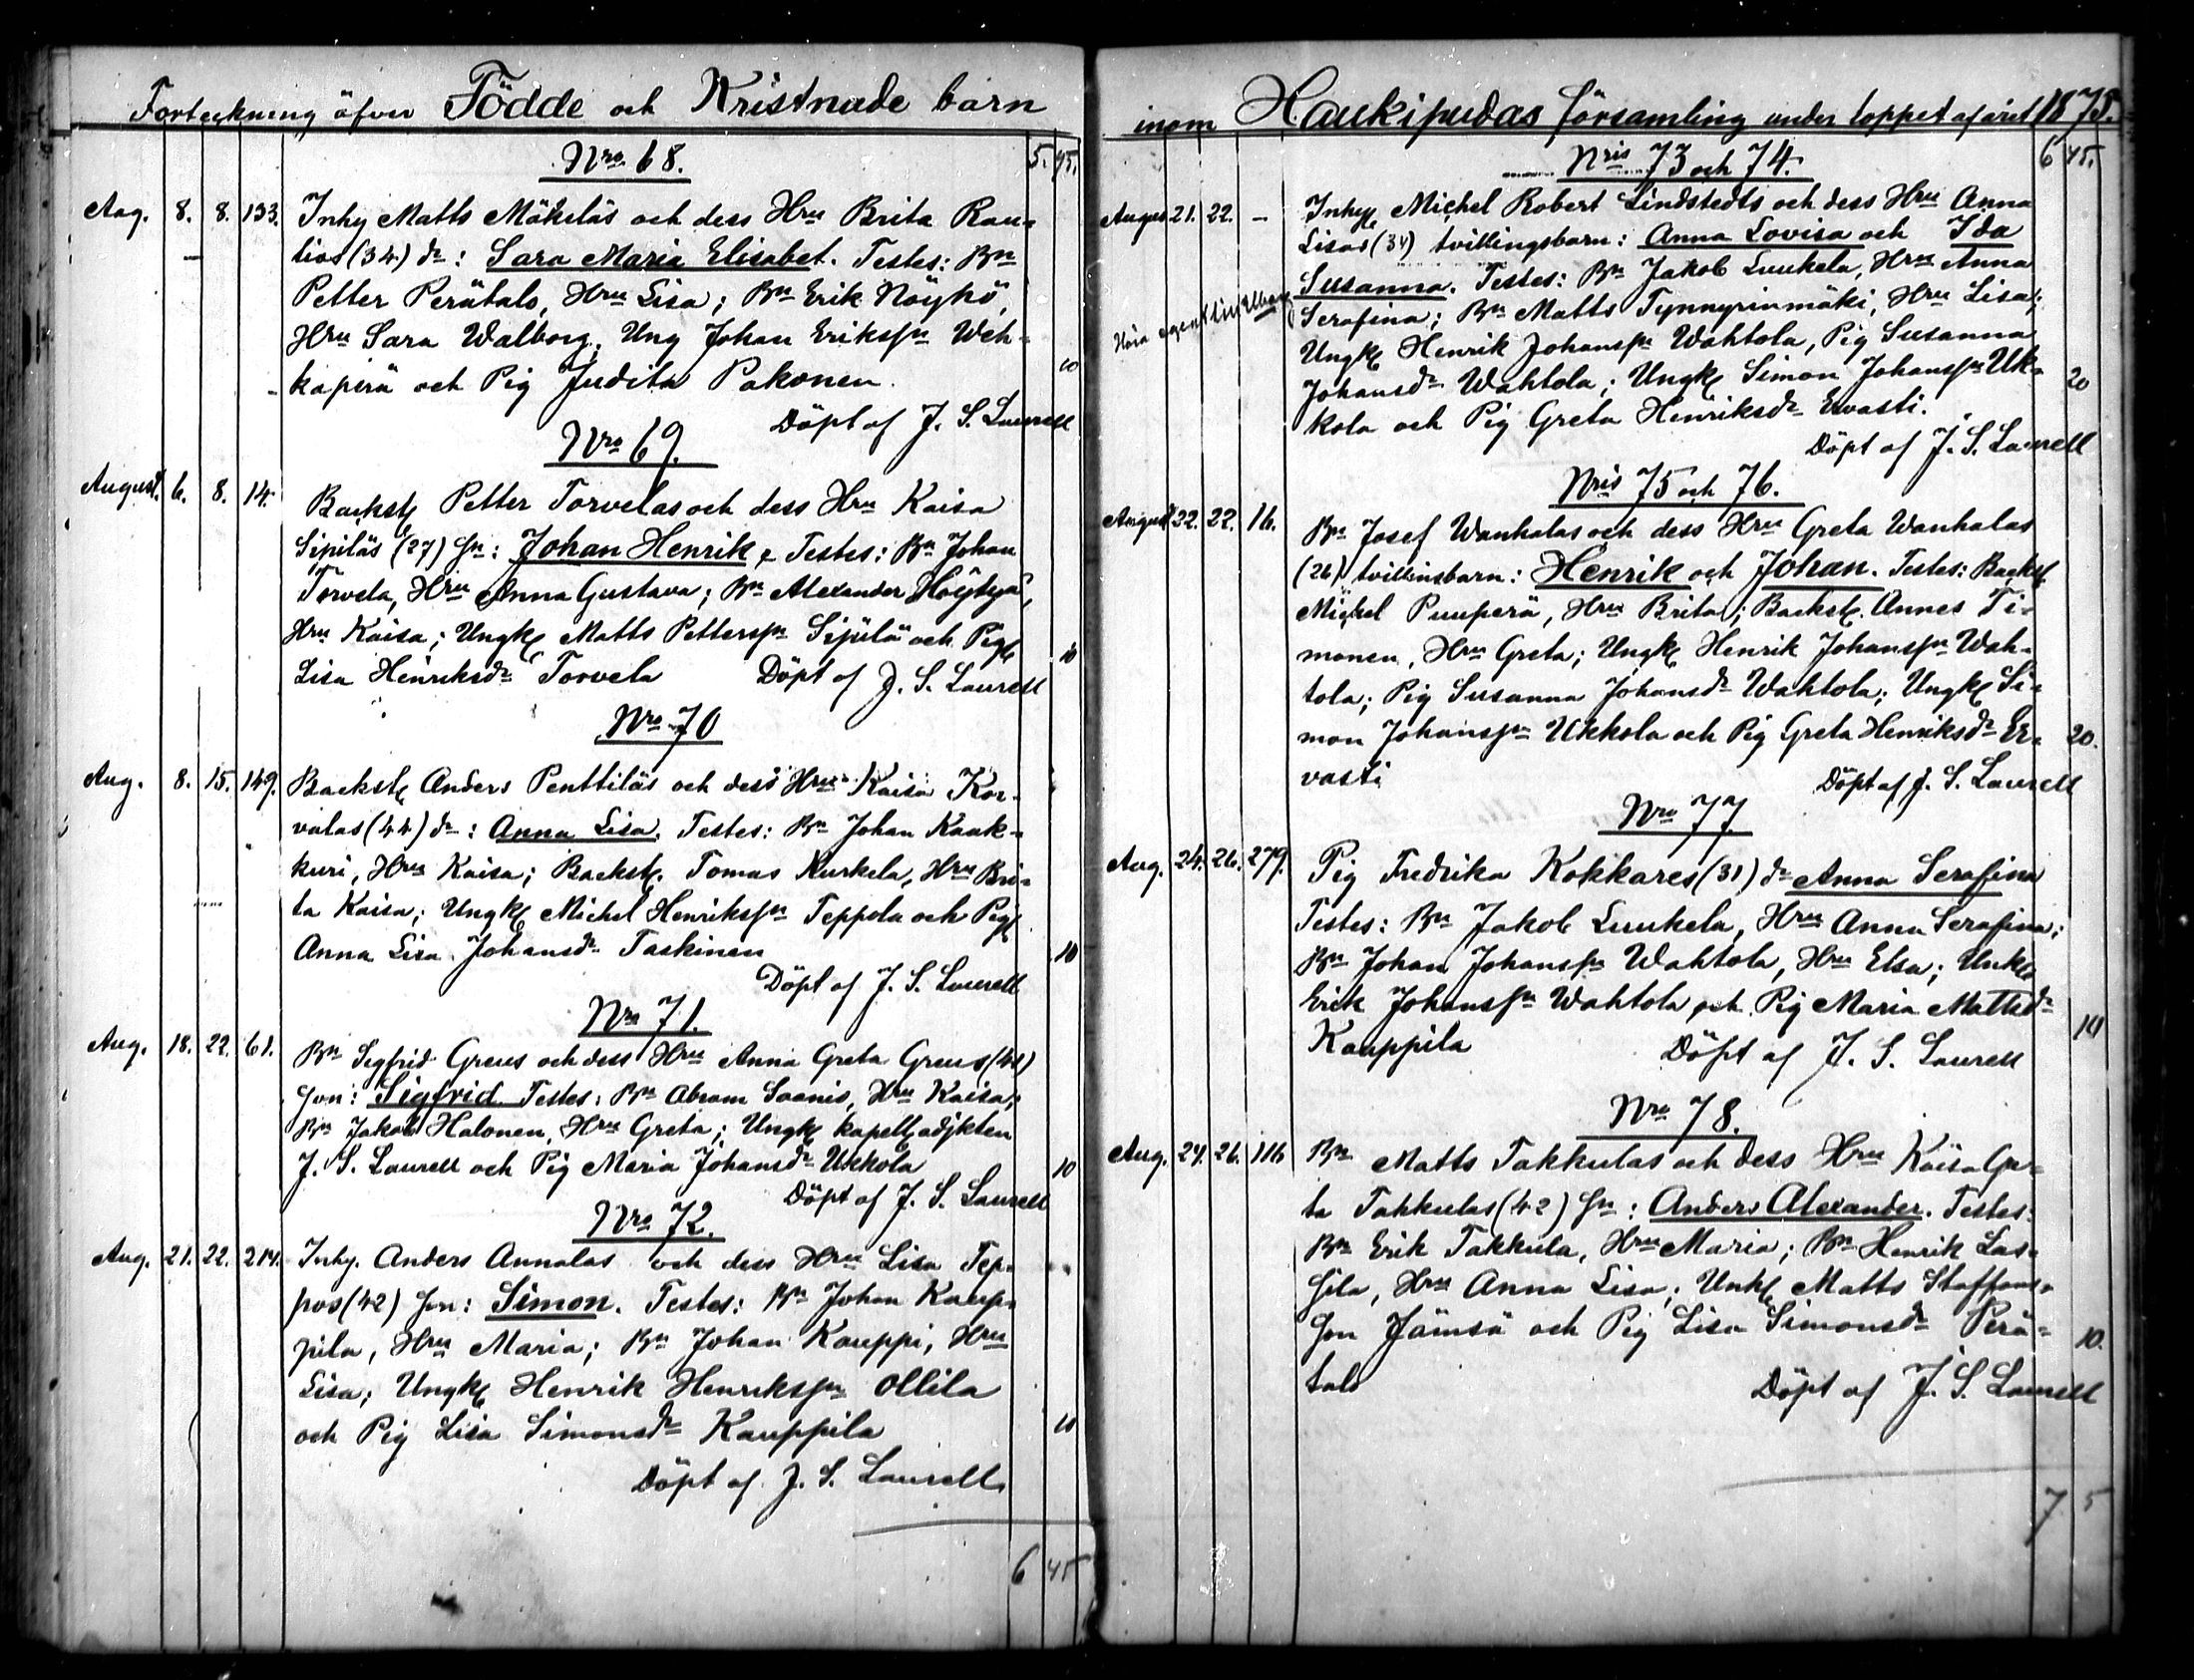 Förteckning öfver Födde och Kristnade barn
Nro 68. 5. 45.
Aug. 8. 8. 133. Inhy Matts Mäkeläs och dess Hru Brita Rau-
tios (34) dr: Sara Maria Elisabet. Testes: Bn
Petter Perätalo, Hru Lisa; Bn Erik Nöykö,
Hru Sara Walborg, Ung Johan Erikssn Weh-
kaperä och Pig Judita Pakonen. 10
Döpt af J. S. Laurell
Nro 69.
August. 6. 8. 14. Backstg Petter Torvelas och dess Hru Kaisa
Sipiläs (27) sn: Johan Henrik. Testes: Bn Johan
Torvela, Hru Anna Gustava; Bn Alexander Höykyä,
Hru Kaisa; Ungkg Matts Petterssn Sipilä och Pig
Lisa Henriksdr Torvela 10
Döpt af J. S. Laurell
Nro 70
Aug. 8. 15. 149. Backstg Anders Penttiläs och dess Hru Kaisa Kor-
valas (44) dr: Anna Lisa. Testes: Bn Johan Kauk-
kuri, Hru Kaisa; Backstg. Tomas Kurkela, Hru Bri-
ta Kaisa; Ungkg Michel Henrikssn Teppola och Pig
Anna Lisa Johansdr Taskinen 10
Döpt af J. S. Laurell
Nro 71.
Aug. 18. 22. 61. Bn Sigfrid Greus och dess Hru Anna Greta Greus (41)
son: Sigfrid. Testes: Bn Abram Soonis, Hru Kaisa;
Bn Jakob Halonen, Hru Greta; Ungkg kapellsadjkten
J. S. Laurell och Pig Maria Johansdr Ukkola 10
Döpt af J. S. Laurell
Nro 72.
Aug. 21. 22. 214. Inhy. Anders Annalas och dess Hru Lisa Tep-
pos (42) son: Simon. Testes: Bn Johan Kaup-
pila, Hru Maria; Bn Johan Kauppi, Hru
Lisa; Ungkg Henrik Henrikssn Ollila
och Pig Lisa Simonsdr Kauppila 10
Döpt af J. S. Laurell
6 45
inom Haukipudas församling under loppet af året 1875.
Nris 73 och 74. 6 45.
August 21. 22. – Inhyg Michel Robert Lindstedts och dess Hru Anna
Lisas (34) tvillingsbarn: Anna Lovisa och Ida
Susanna. Testes: Bn Jakob Luukela, Hru Anna
Höra egentlig Uleåborg
Serafina; Bn Matts Tynnyrinmäki, Hru Lisa;
Ungkg Henrik Johanssn Wahtola, Pig Susanna
Johansdr Wahtola; Ungkg Simon Johanssn Uk- 20
kola och Pig Greta Henriksdr Ervasti.
Döpt af J. S. Laurell
Nris 75 och 76.
August 22. 22. 16. Bn Josef Wanhalas och dess Hru Greta Wanhalas
(26) tvillinsbarn: Henrik och Johan. Testes: Backstg
Michel Puuperä, Hru Brita; Backstg. Annes Ti-
monen, Hru Greta; Ungkg Henrik Johanssn Wah-
tola; Pig Susanna Johansdr Wahtola; Ungkg Si-
mon Johanssn Ukkola och Pig Greta Henriksdr Er- 20.
vasti
Döpt af J. S. Laurell
Nro 77.
Aug. 24. 26. 279. Pig Fredrika Kokkares (31) dr Anna Serafina
Testes: Bn Jakob Luukela, Hru Anna Serafina;
Bn Johan Johanssn Wahtola, Hru Elsa; Unkg
Erik Johanssn Wahtola och Pig Maria Mattsdr
Kauppila 10
Döpt af J. S. Laurell
Nro 78.
Aug. 24. 26. 116 Bn Matts Takkulas och dess Hru Kaisa Gre-
ta Takkulas (42) sn: Anders Alexander. Testes:
Bn Erik Takkula, Hru Maria; Bn Henrik Las-
sila, Hru Anna Lisa; Unkg Matts Staffans-
son Jämsä och Pig Lisa Simonsdr Perä- 10.
talo
Döpt af J. S. Laurell
7 5